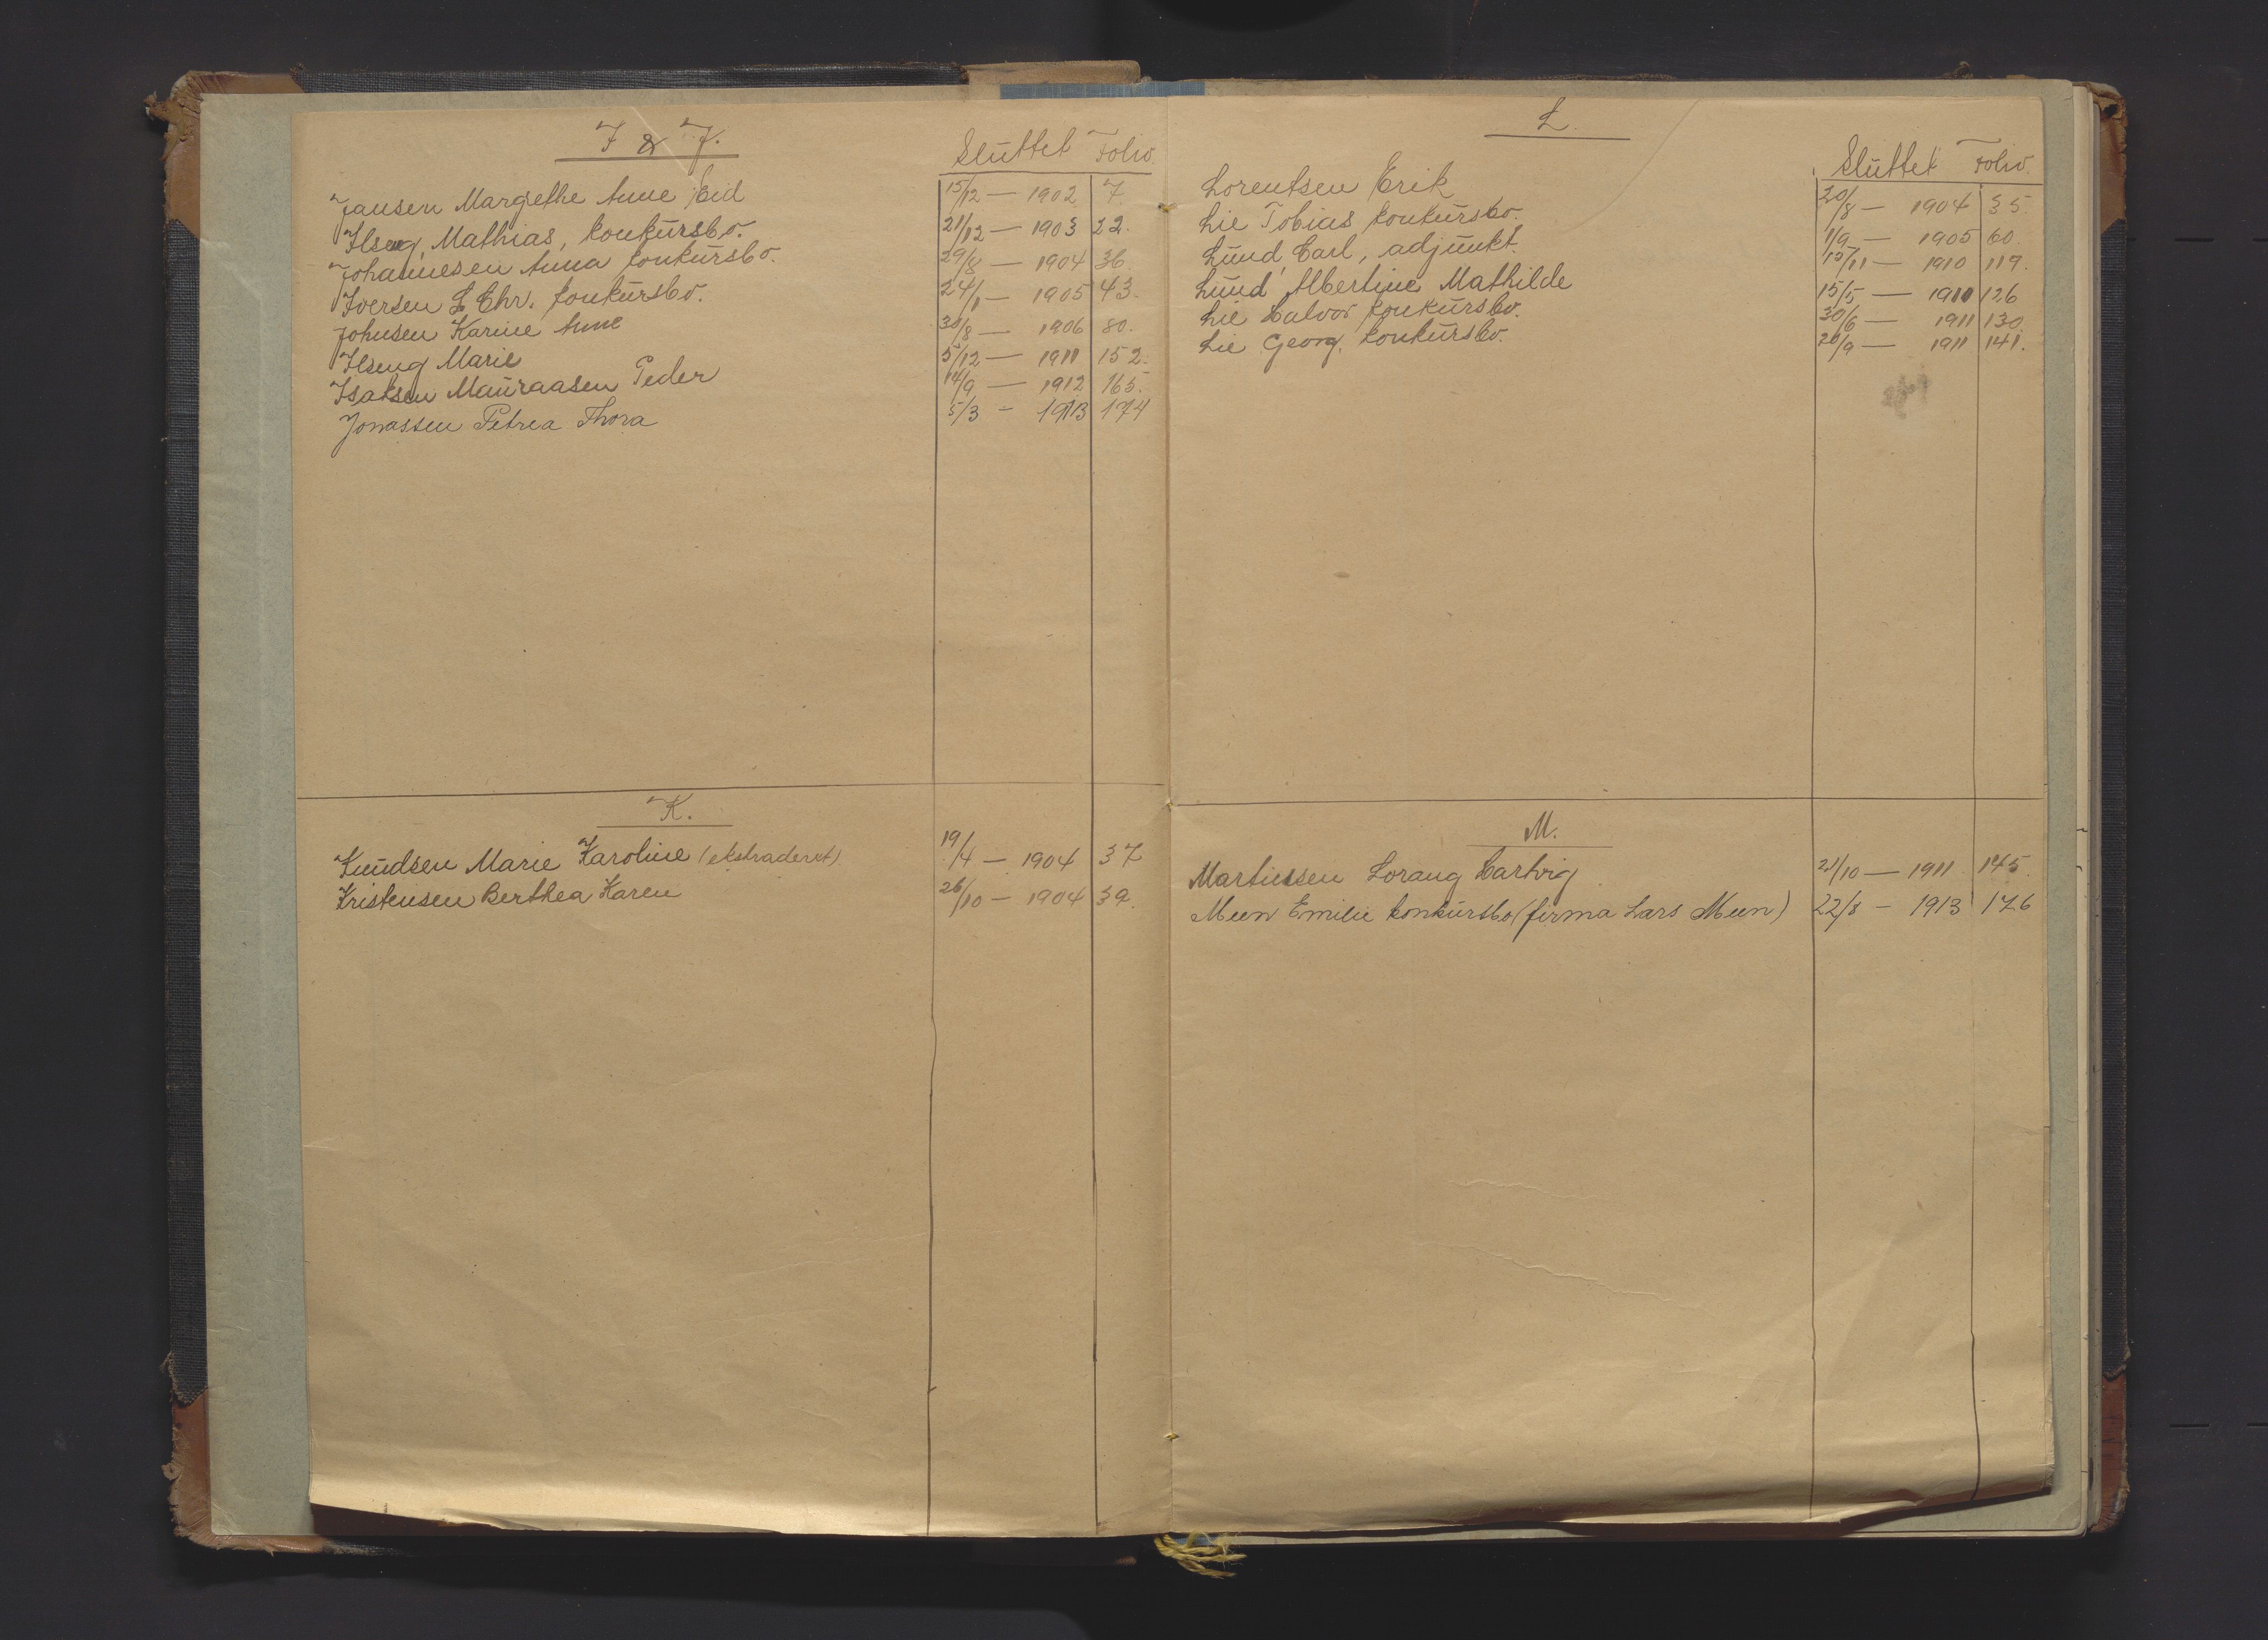 I & J.
Sluttet Folio.
Jansen Margrethe Anne Eid 15/12 — 1902 7.
Ilseng, Mathias, konkursbo. 21/12 — 1903 22.
Johannesen Anna konkursbo. 29/8 — 1904 36.
Iversen L Chr. konkursbo. 24/1 — 1905 43.
Johnsen Karine Anne 30/8 — 1906 80.
Ilseng Marie 5/12 — 1911 152.
Isaksen Mauraasen Peder 14/9 — 1912 165.
Jonassen Petrea Thora 5/3 — 1913 174
K.
Knudsen Marie Karoline (ekstraderet) 19/4 — 1904 37
Kristensen Berthea Karen 26/10 — 1904 39.
L.
Sluttet Folio.
Lorentsen Erik 20/8 — 1904 35.
Lie Tobias konkursbo. 1/9 — 1905 60.
Lund, Carl, adjunkt. 15/11 — 1910 119.
Lund Albertine Mathilde 15/5 — 1911 126
Lie Halvor konkursbo. 30/6 — 1911 130.
Lie Georg. konkursbo. 26/9 — 1911 141.
M.
Martinsen Lorang Hartvig 21/10 — 1911 145.
Meen Emilie konkursbo (firma Lars Meen) 22/8 — 1913 176